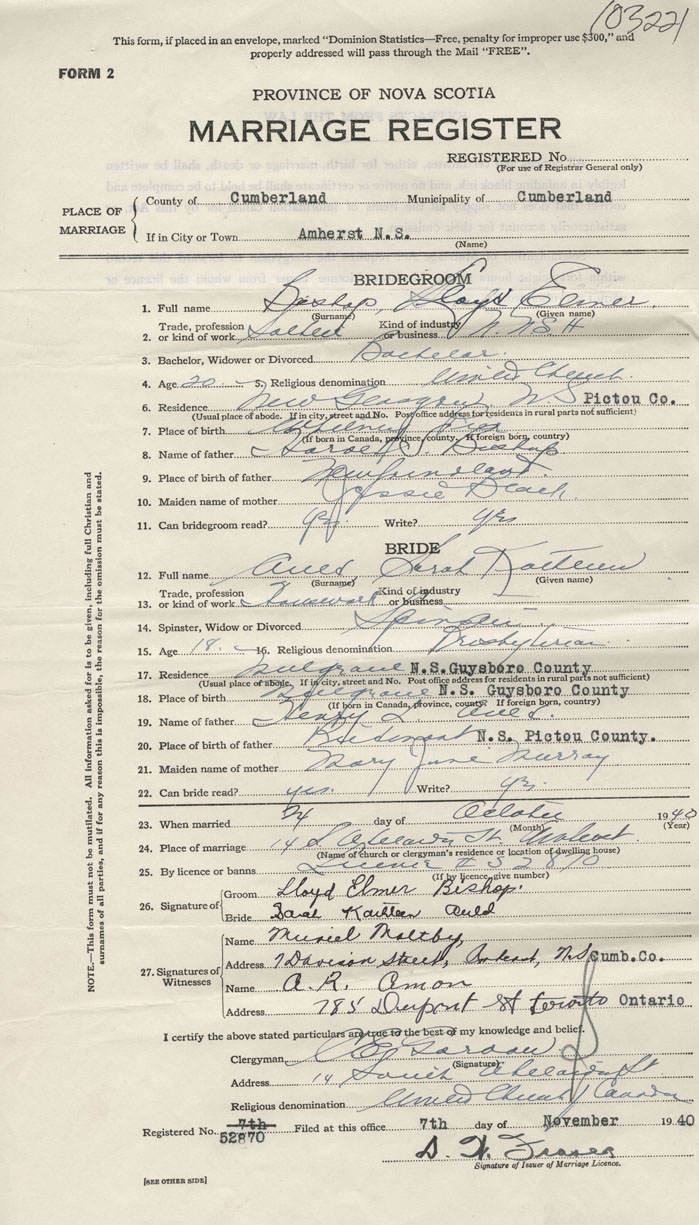 103221
This form, if placed in an envelope, marked "Dominion Statistics—Free, penalty for improper use $300," and
properly addressed will pass through the Mail "FREE".
FORM 2
PROVINCE OF NOVA SCOTIA
MARRIAGE REGISTER
REGISTERED No.
(For use of Registrar General only)
PLACE OF MARRIAGE
County of Cumberland Municipality of Cumberland
If in City or Town Amherst N.S.
(Name)
BRIDEGROOM
1. Full name Bishop, Lloyd Elmer
(Surname) (Given name)
2. Trade, profession or kind of work Soldier Kind of industry or business N.N.S.H
3. Bachelor, Widower or Divorced Bachelor.
4. Age 20 5. Religious denomination United Church.
6. Residence New Glasgow N.S Pictou Co.
(Usual place of abode. If in city, street and No. Post office address for residents in rural parts not sufficient)
7. Place of birth
(If born in Canada, province, county. If foreign born, country)
8. Name of father Bishop
9. Place of birth of father Newfoundland.
10. Maiden name of mother Jessie
11. Can bridegroom read? yes. Write? yes
BRIDE
12. Full name Auld Sarah Kathleen
(Surname) (Given name)
13. Trade, profession or kind of work Housework Kind of industry or business
14. Spinster, Widow or Divorced Spinster
15. Age 18. 16. Religious denomination Presbyterian
17. Residence Mulgrave N.S.Guysboro County
(Usual place of abode. If in city, street and No. Post office address for residents in rural parts not sufficient)
18. Place of birth Mulgrave N.S. Guysboro County
(If born in Canada, province, county. If foreign born, country)
19. Name of father Henry L. Auld.
20. Place of birth of father N.S. Pictou County.
21. Maiden name of mother Mary Jane Murray
22. Can bride read? yes. Write? yes.
23. When married 24 day of October 1940
(Month) (Year)
24. Place of marriage 14 S. St. Amherst.
(Name of church or clergyman's residence or location of dwelling house)
25. By licence or banns License # 52870
(If by licence, give number)
26. Signature of
Groom Lloyd Elmer Bishop.
Bride Sarah Kathleen Auld
27. Signatures of Witnesses
Name Muriel Maltby,
Address 7 Davison Street, Amherst, N.S. Cumb.Co.
Name A. R. Amon
Address 785 Dupont St Toronto Ontario
I certify the above stated particulars are true to the best of my knowledge and belief.
Clergyman Gordon
(Signature)
Address 14 South St
Religious denomination United Church of Canada
Registered No. 7th 52870 Filed at this office 7th day of November 1940
Signature of Issuer of Marriage Licence.
[SEE OTHER SIDE]
NOTE.—This form must not be mutilated. All information asked for is to be given, including full Christian and
surnames of all parties, and if for any reason this is impossible, the reason for the omission must be stated.